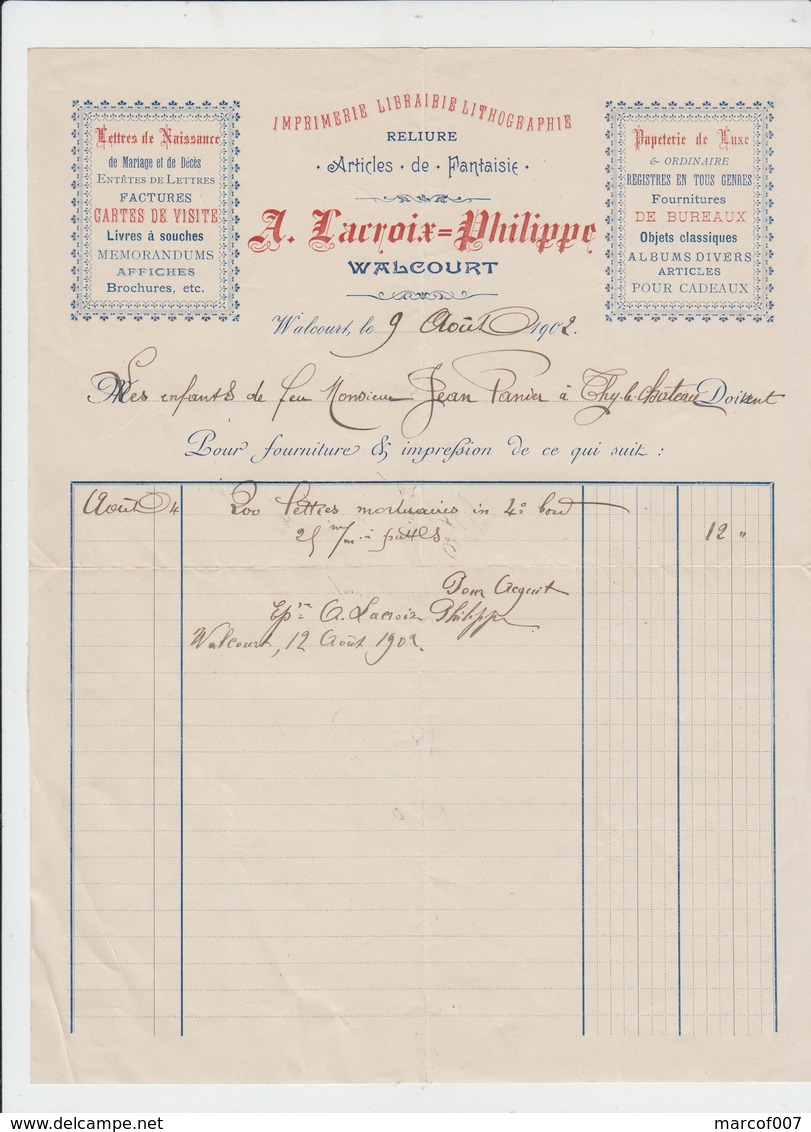 IMPRIMERIE LIBRAIRIE LITHOGRAPHIE
RELIURE
Articles de Fantaisie
A. Lacroix=Philippe
WALCOURT
Lettres de Naissance
de Mariage et de Décès
ENTÊTES DE LETTRES
FACTURES
CARTES DE VISITE
Livres à souches
MEMORANDUMS
AFFICHES
Brochures, etc.
Papeterie de Luxe
& ORDINAIRE
REGISTRES EN TOUS GENRES
Fournitures
DE BUREAUX
Objets classiques
ALBUMS DIVERS
ARTICLES
POUR CADEAUX
Walcourt, le 9 Août 1902.
Les enfants de feu Monsieur Jean Panier à Thy-le-Chateau Doivent
Pour fourniture & impression de ce qui suit :
Août 4 200 lettres mortuaires in 4° bord
25 m/m à pattes. 12 "
Pour Acquit
A. Lacroix Philippe
Walcourt, 12 Août 1902.
marcof007